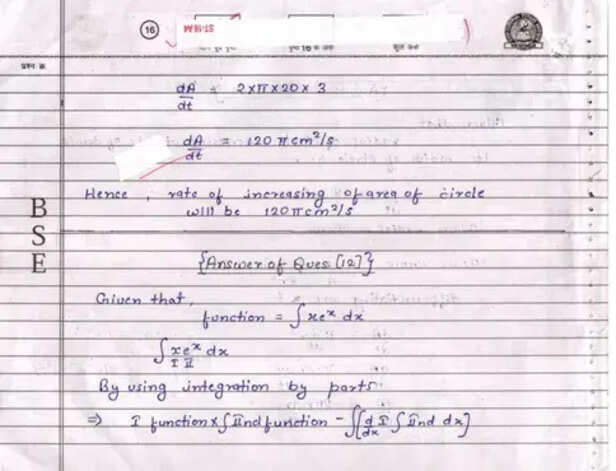 16
प्रश्न क्र.
dA/dt = 2×π×20×3
dA/dt = 120 π cm²/s
Hence, rate of increasing of area of circle
will be 120π cm²/s
B
S
E
{Answer of Ques [12]}
Given that,
function = ∫xeˣ dx
∫xeˣ dx
I II
By using integration by parts
⇒ I function × ∫IInd function - ∫[d/dx I ∫IInd dx]